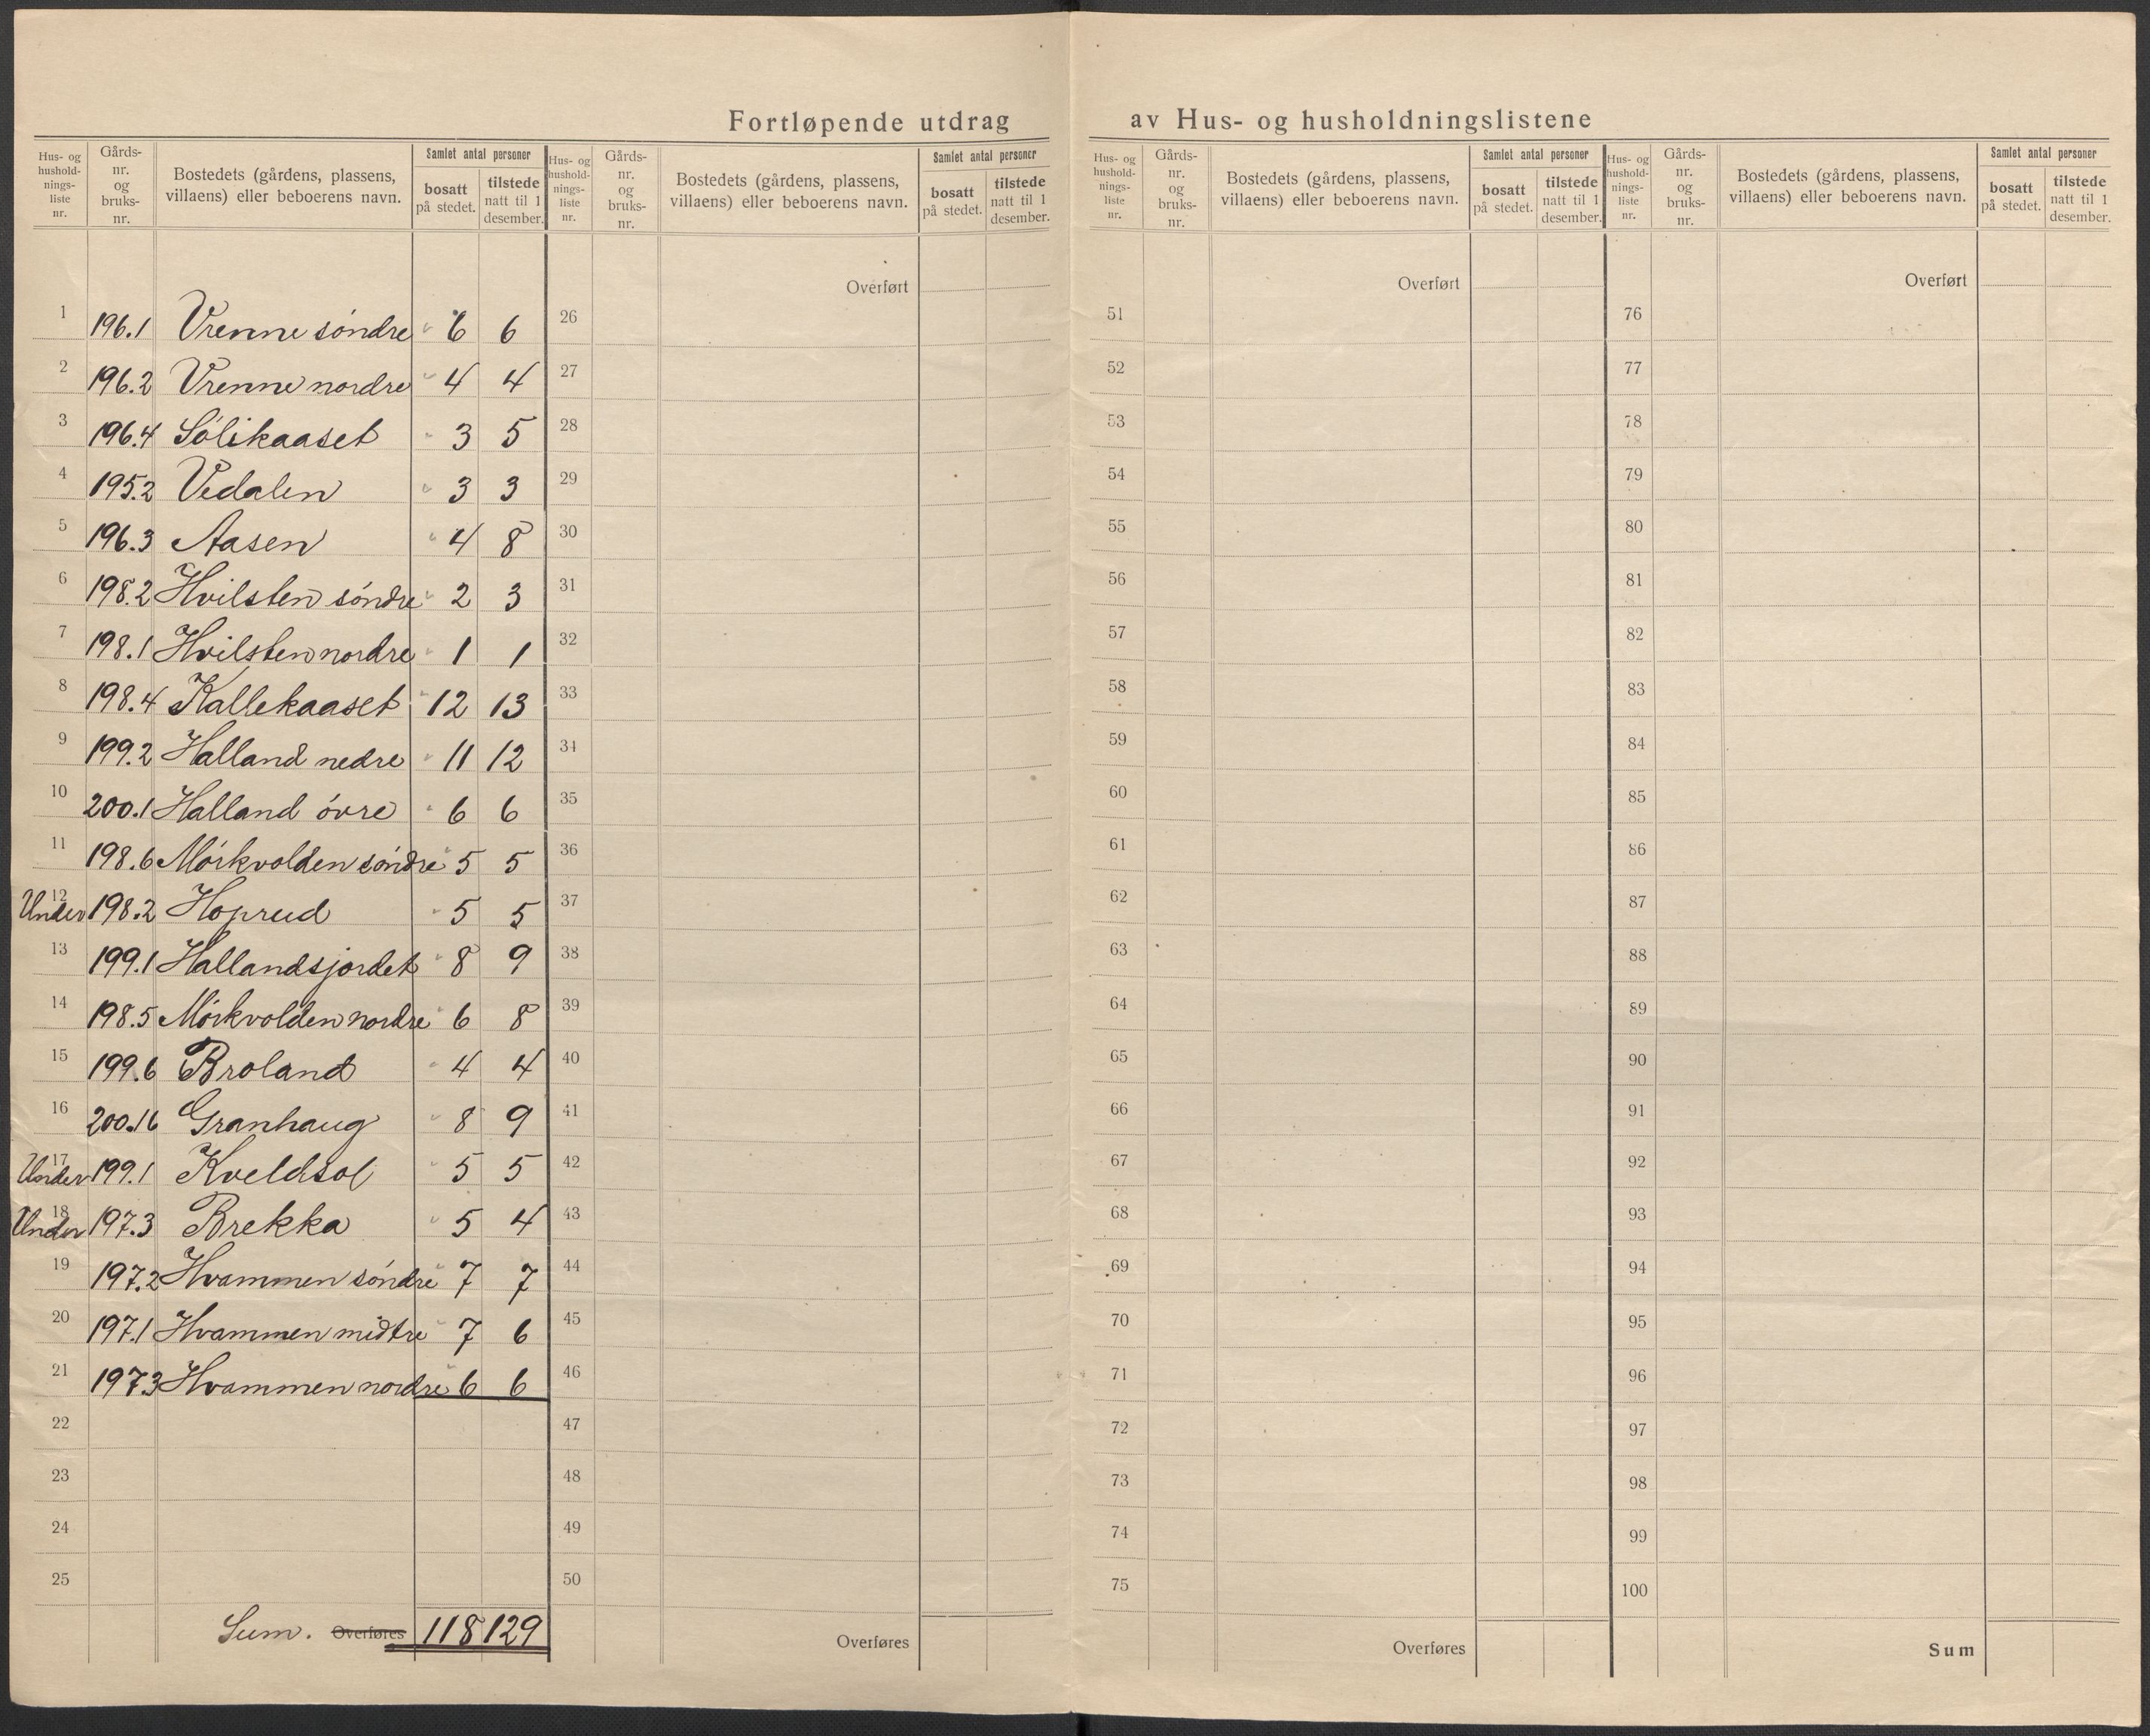 Fortløpende utdrag av Hus- og husholdningslistene
Hus- og hushold- nings- liste nr. | Gårds- nr. og bruks- nr. | Bostedets (gårdens, plassens, villaens) eller beboerens navn. | Samlet antal personer | bosatt på stedet. | tilstede natt til 1 desember.
1 196.1 Vrenne söndre 6 6
2 196.2 Vrenne nordre 4 4
3 196.4 Sölikaaset 3 5
4 195.2 Vedalen 3 3
5 196.3 Aasen 4 8
6 198.2 Hvilsten söndre 2 3
7 198.1 Hvilsten nordre 1 1
8 198.4 Kallekaaset 12 13
9 199.2 Halland nedre 11 12
10 200.1 Halland övre 6 6
11 198.6 Mörkvolden söndre 5 5
12 Under 198.2 Hoprud 5 5
13 199.1 Hallandsjordet 8 9
14 198.5 Mörkvolden nordre 6 8
15 199.6 Broland 4 4
16 200.16 Granhaug 8 9
17 Under 199.1 Kveldsol 5 5
18 Under 197.3 Brekka 5 4
19 197.2 Hvammen söndre 7 7
20 197.1 Hvammen midtre 7 6
21 197.3 Hvammen nordre 6 6
22
23
24
25
Sum. Overføres 118 129
Hus- og hushold- nings- liste nr. | Gårds- nr. og bruks- nr. | Bostedets (gårdens, plassens, villaens) eller beboerens navn. | Samlet antal personer | bosatt på stedet. | tilstede natt til 1 desember.
Overført
26
27
28
29
30
31
32
33
34
35
36
37
38
39
40
41
42
43
44
45
46
47
48
49
50
Overføres
Hus- og hushold- nings- liste nr. | Gårds- nr. og bruks- nr. | Bostedets (gårdens, plassens, villaens) eller beboerens navn. | Samlet antal personer | bosatt på stedet. | tilstede natt til 1 desember.
Overført
51
52
53
54
55
56
57
58
59
60
61
62
63
64
65
66
67
68
69
70
71
72
73
74
75
Overføres
Hus- og hushold- nings- liste nr. | Gårds- nr. og bruks- nr. | Bostedets (gårdens, plassens, villaens) eller beboerens navn. | Samlet antal personer | bosatt på stedet. | tilstede natt til 1 desember.
Overført
76
77
78
79
80
81
82
83
84
85
86
87
88
89
90
91
92
93
94
95
96
97
98
99
100
Sum